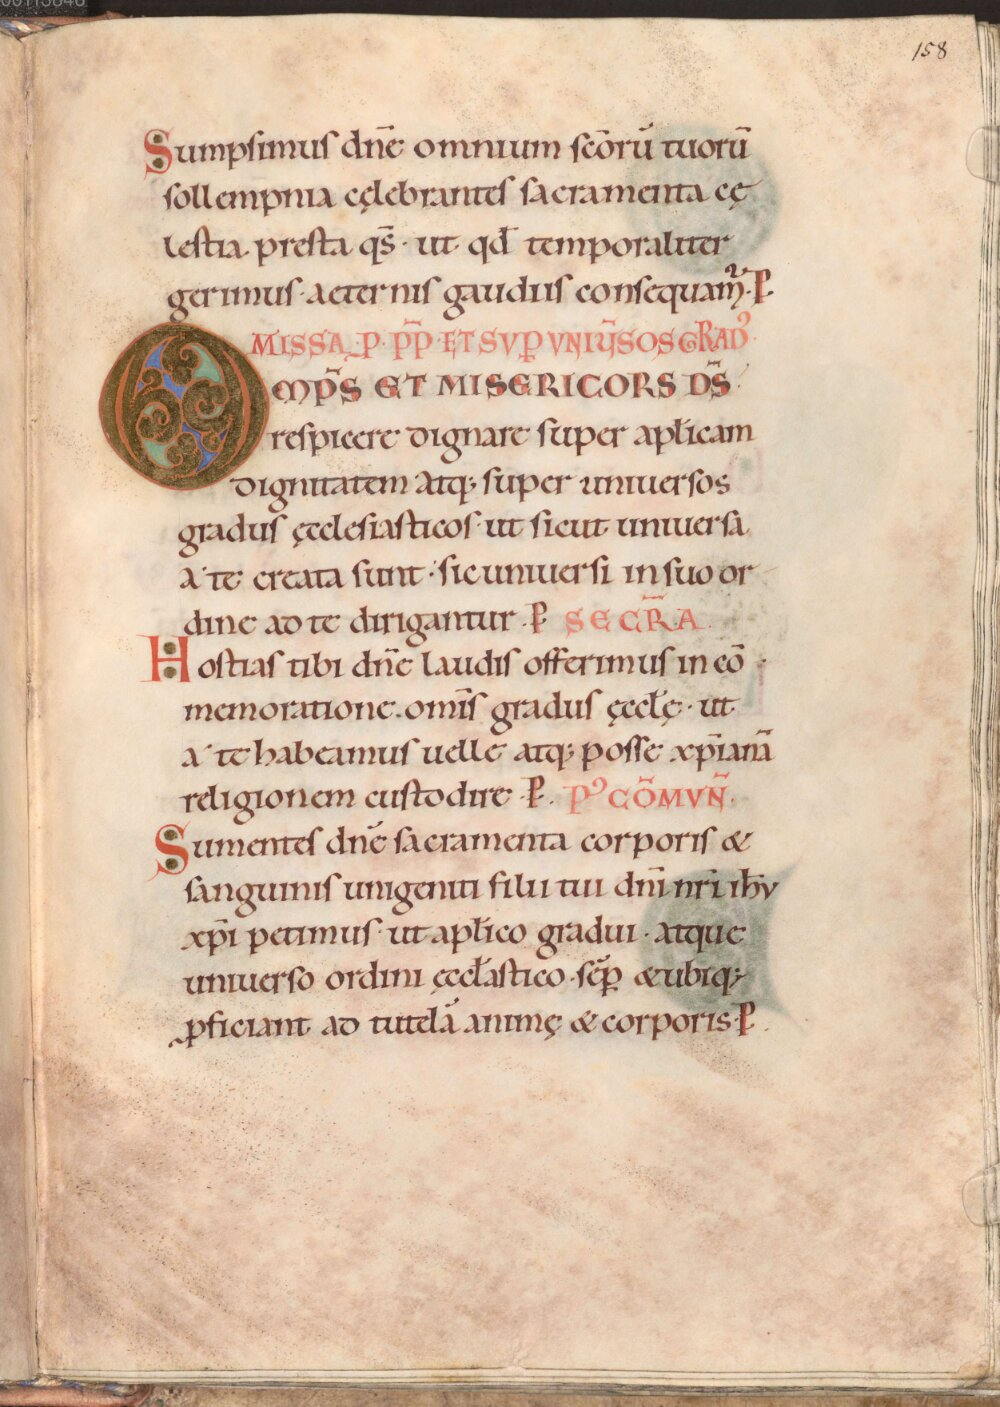 00113846
158
Sumpsimus dn̄e omnium sc̄orū tuorū
sollempnia cęlebrantes sacramenta cę
lestia. presta qs̄· ut· qđ temporaliter
gerimus· aeternis gaudiis consequam̄· P̱
MISSA P PP̄ ET SVP VNIV̄SOS GRAD'
OMPS̄ ET MISERICORS DS̄·
respicere dignare super aplicam
dignitatem atq; super uniuersos
gradus ęcclesiasticos· ut sicut uniuersa
a te creata sunt· sic uniuersi in suo or
dine ad te dirigantur. P̱ SECR̄A
Hostias tibi dn̄e laudis offerimus in cō
memoratione. omīs gradus ęccłę· ut
a te habeamus uelle atq; posse xp̄ianā
religionem custodire· P̱. P' CŌMVN̄.
Sumentes dn̄e sacramenta corporis &
sanguinis unigeniti filii tui dn̄i nr̄i ihv
xp̄i petimus· ut apłico gradui· atque
uniuerso ordini ęccłastico· sēp & ubiq;
ꝓficiant ad tutelā animę & corporis· P̱